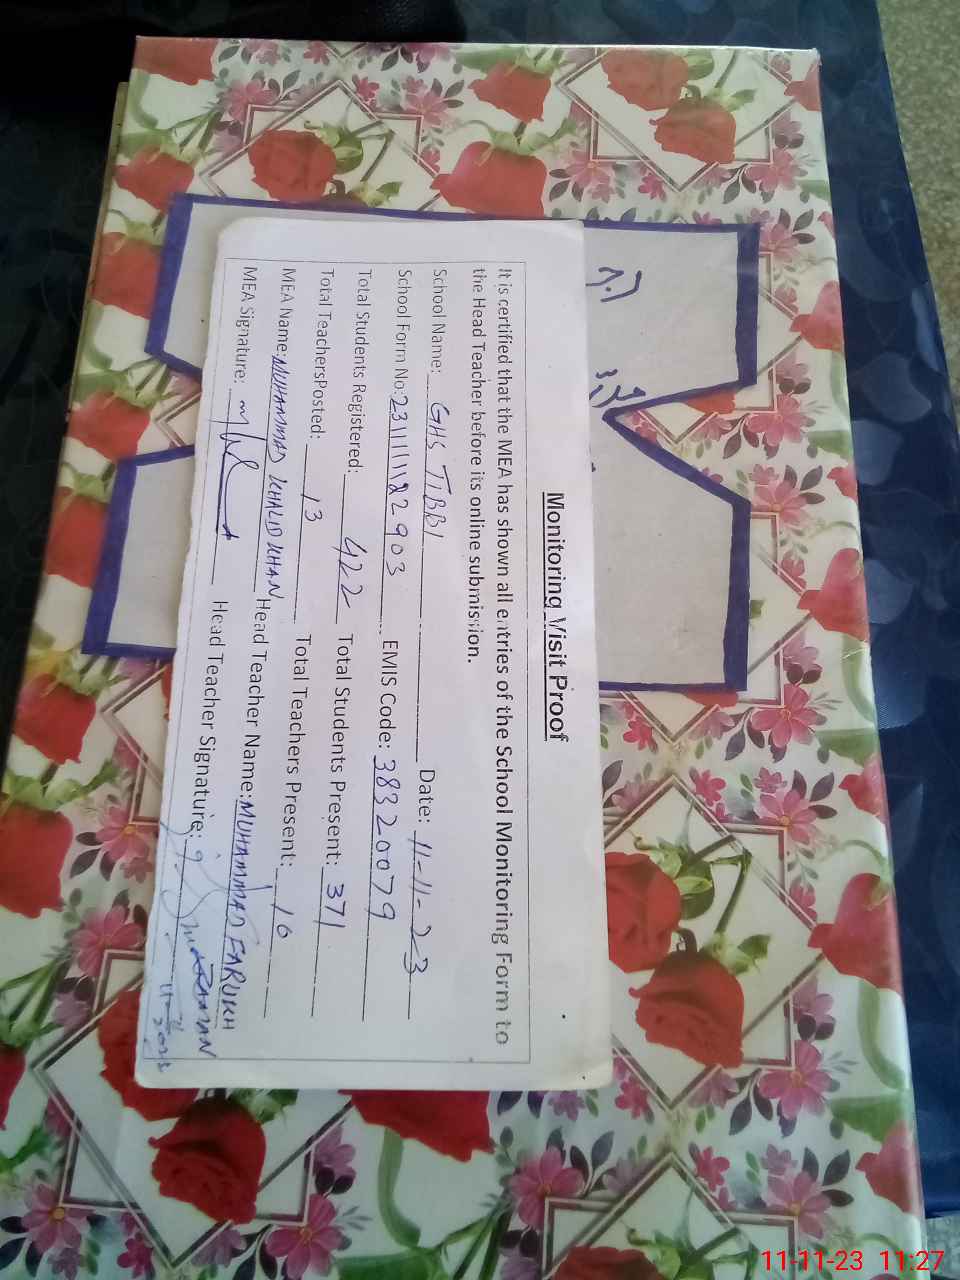 Monitoring Visit Proof
It is certified that the MEA has shown all entries of the School Monitoring Form to
the Head Teacher before its online submission.
School Name: GHS TIBBI Date: 11-11-23
School Form No: 231111122903 EMIS Code: 38320079
Total Students Registered: 422 Total Students Present: 371
Total TeachersPosted: 13 Total Teachers Present: 10
MEA Name: MUHAMMAD KHALID KHAN Head Teacher Name: MUHAMMAD FARUKH
MEA Signature: Head Teacher Signature: ZAMAN
11-11-23 11:27